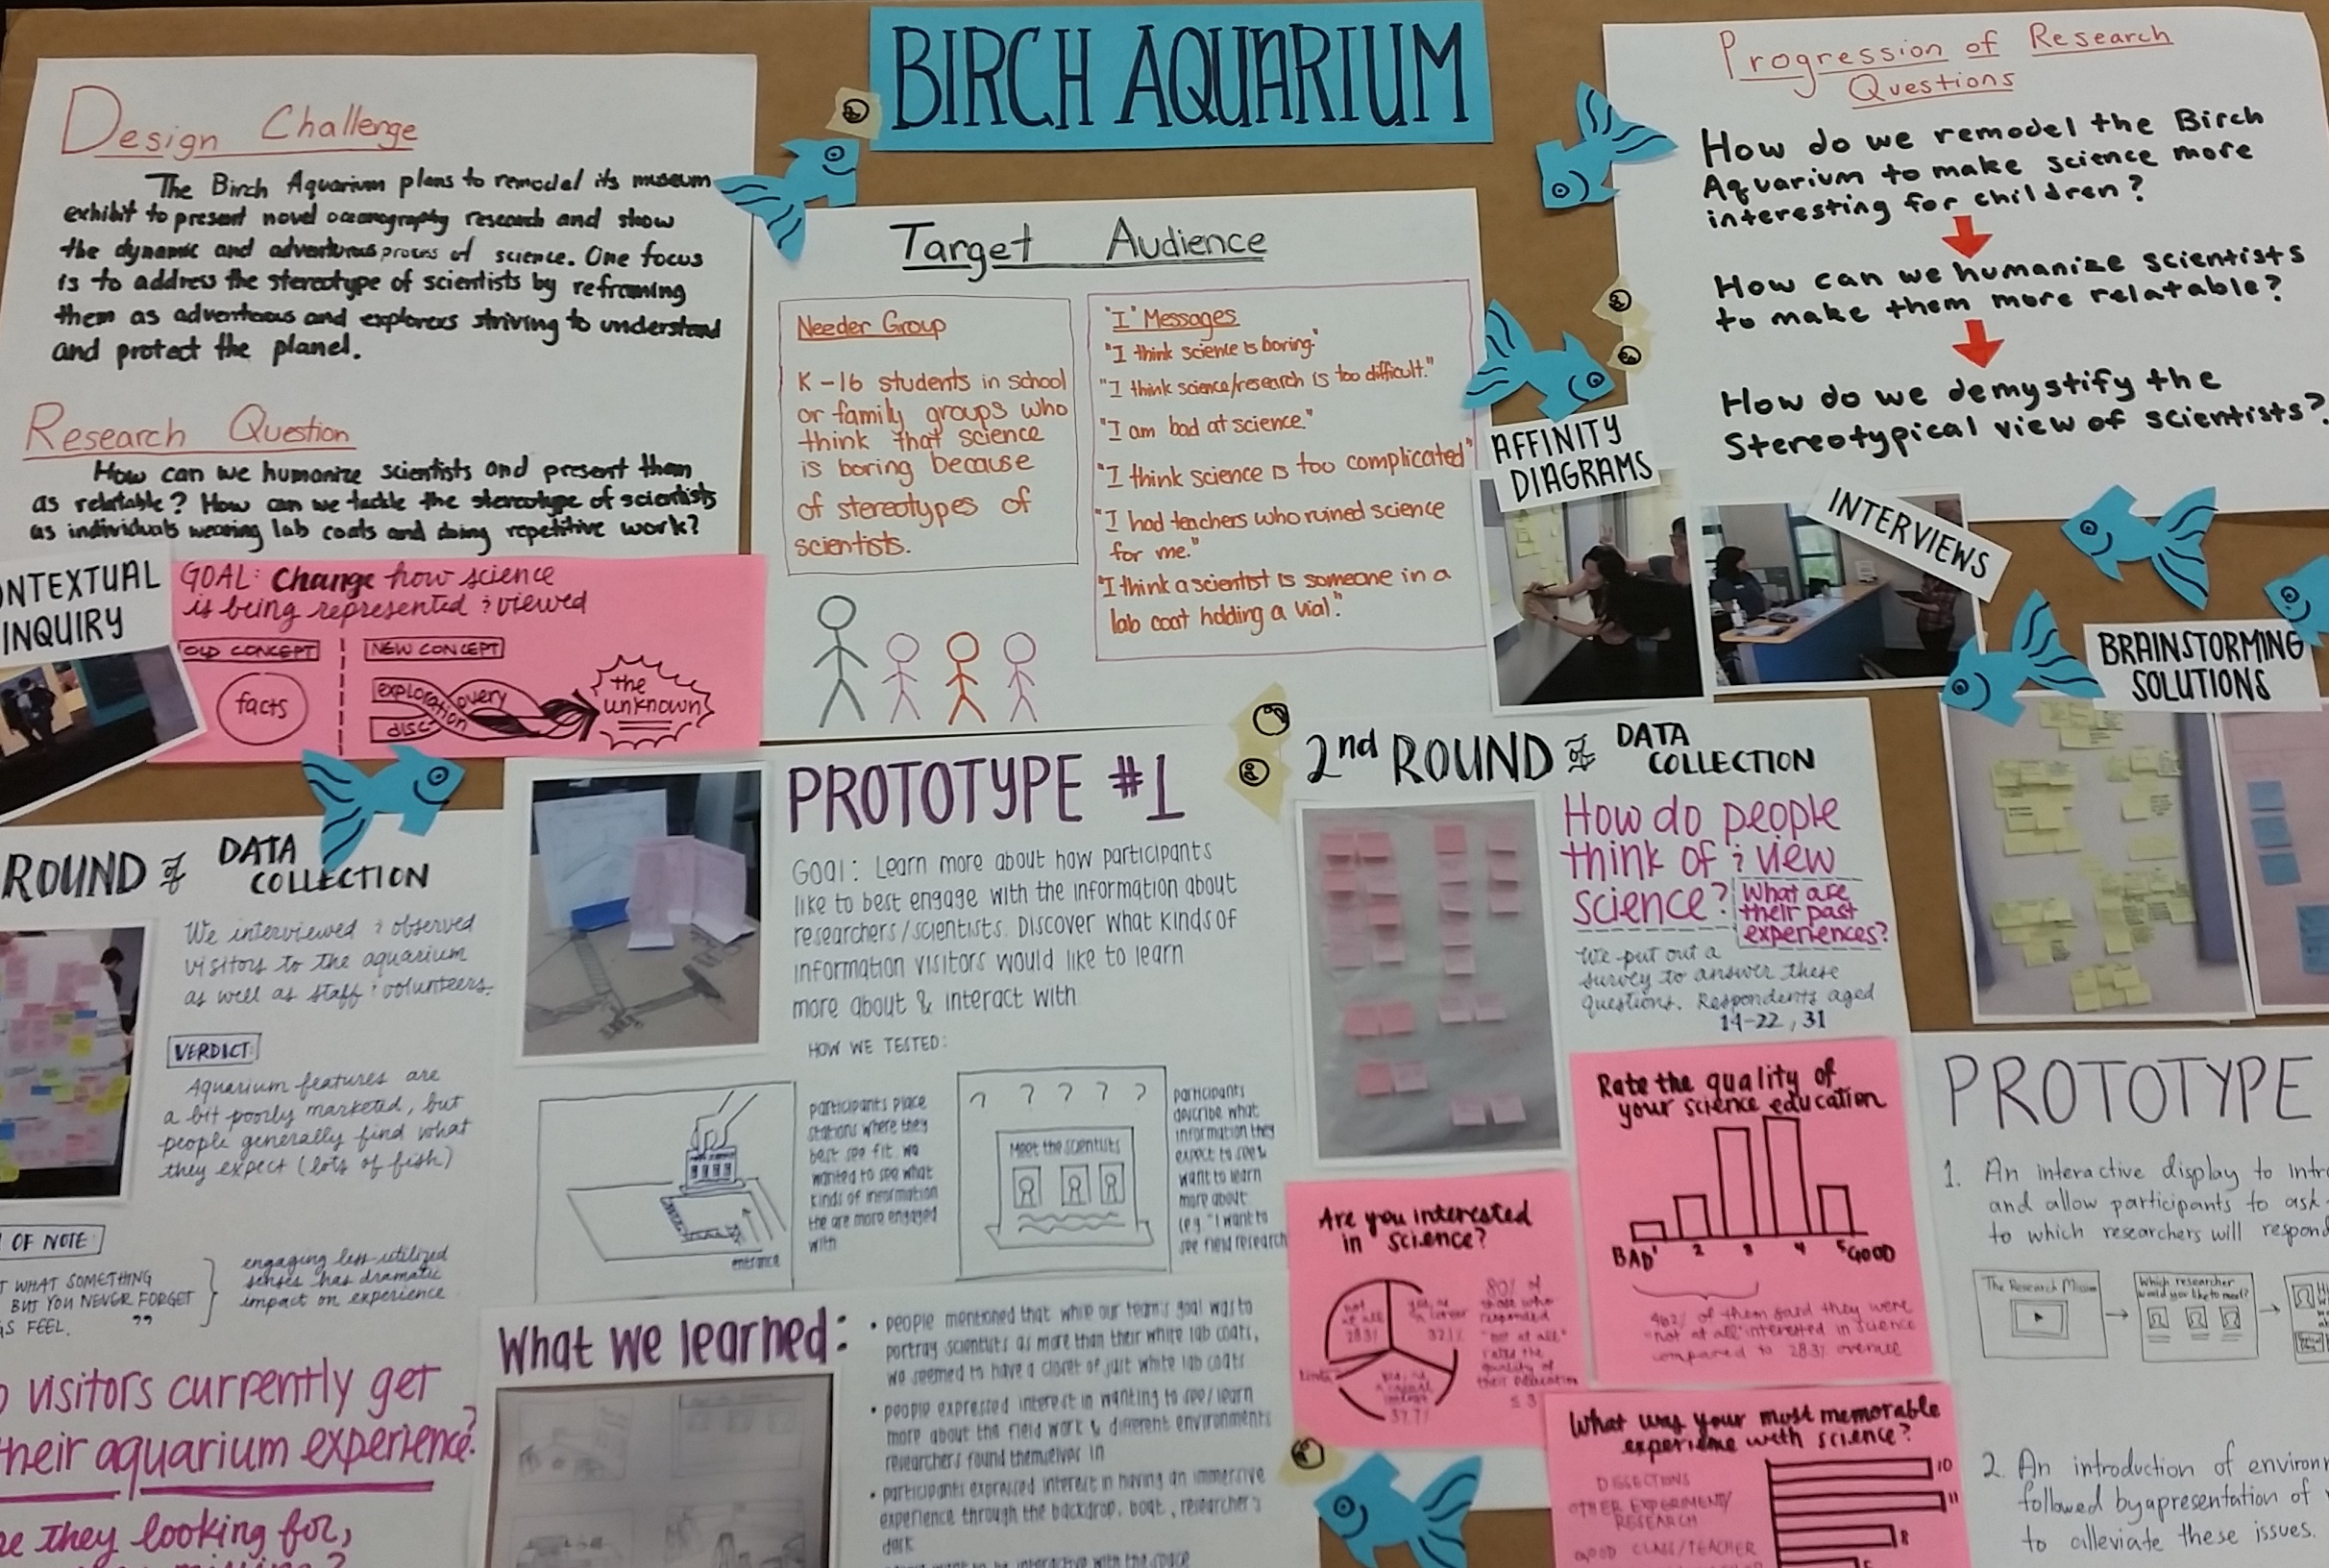 BIRCH AQUARIUM
Design Challenge
The Birch Aquarium plans to remodel its museum
exhibit to present novel oceanography research and show
the dynamic and adventurous process of science. One focus
is to address the stereotype of scientists by reframing
them as adventurous and explorers striving to understand
and protect the planet.
Research Question
How can we humanize scientists and present them
as relatable? How can we tackle the stereotype of scientists
as individuals wearing lab coats and doing repetitive work?
NTEXTUAL
INQUIRY
GOAL: Change how science
is being represented & viewed
OLD CONCEPT
facts
NEW CONCEPT
exploration
discovery
the
unknown
Target Audience
Needer Group
K-16 students in school
or family groups who
think that science
is boring because
of stereotypes of
scientists.
"I" Messages
"I think science is boring."
"I think science/research is too difficult."
"I am bad at science."
"I think science is too complicated"
"I had teachers who ruined science
for me."
"I think a scientist is someone in a
lab coat holding a vial."
Progression of Research
Questions
How do we remodel the Birch
Aquarium to make science more
interesting for children?
How can we humanize scientists
to make them more relatable?
How do we demystify the
Stereotypical view of scientists?
AFFINITY
DIAGRAMS
INTERVIEWS
BRAINSTORMING
SOLUTIONS
ROUND of DATA
COLLECTION
We interviewed & observed
visitors to the aquarium
as well as staff & volunteers.
VERDICT:
Aquarium features are
a bit poorly marketed, but
people generally find what
they expect (lots of fish)
OF NOTE:
WHAT SOMETHING
BUT YOU NEVER FORGET
FEEL. "
engaging less-utilized
senses has dramatic
impact on experience
visitors currently get
their aquarium experience?
they looking for,
PROTOTYPE #1
Goal: Learn more about how participants
like to best engage with the information about
researchers/scientists. Discover what kinds of
information visitors would like to learn
more about & interact with
HOW WE TESTED:
entrance
participants place
stations where they
best see fit. we
wanted to see what
kinds of information
the are more engaged
with
? ? ? ? ?
Meet the scientists
participants
describe what
information they
expect to see &
want to learn
more about
(e.g. "I want to
see field research
What we learned:
• people mentioned that while our team's goal was to
portray scientists as more than their white lab coats,
we seemed to have a closet of just white lab coats
• people expressed interest in wanting to see/learn
more about the field work & different environments
researchers found themselves in
• participants expressed interest in having an immersive
experience through the backdrop, boat, researcher's
interactive with the space
2nd ROUND of DATA
COLLECTION
How do people
think of & view
science?
What are
their past
experiences?
We put out a
survey to answer these
questions. Respondents aged
14-22, 31
Are you interested
in science?
not
at all
28.3%
32.1%
37.7%
80% of
those who
responded
"not at all"
rated the
quality of
their education
≤ 3
Rate the quality of
your science education
BAD 1 2 3 4 5 GOOD
of them said they were
"not at all" interested in science
compared to 28.3% overall
What was your most memorable
experience with science?
DISSECTIONS
10
OTHER EXPERIMENT/
RESEARCH
11
GOOD CLASS/TEACHER
8
PROTOTYPE
1. An interactive display to
and allow participants to ask
to which researchers will respond
The Research Mission
Which researcher
would you like to meet?
2. An introduction of
followed by a presentation of
to alleviate these issues.